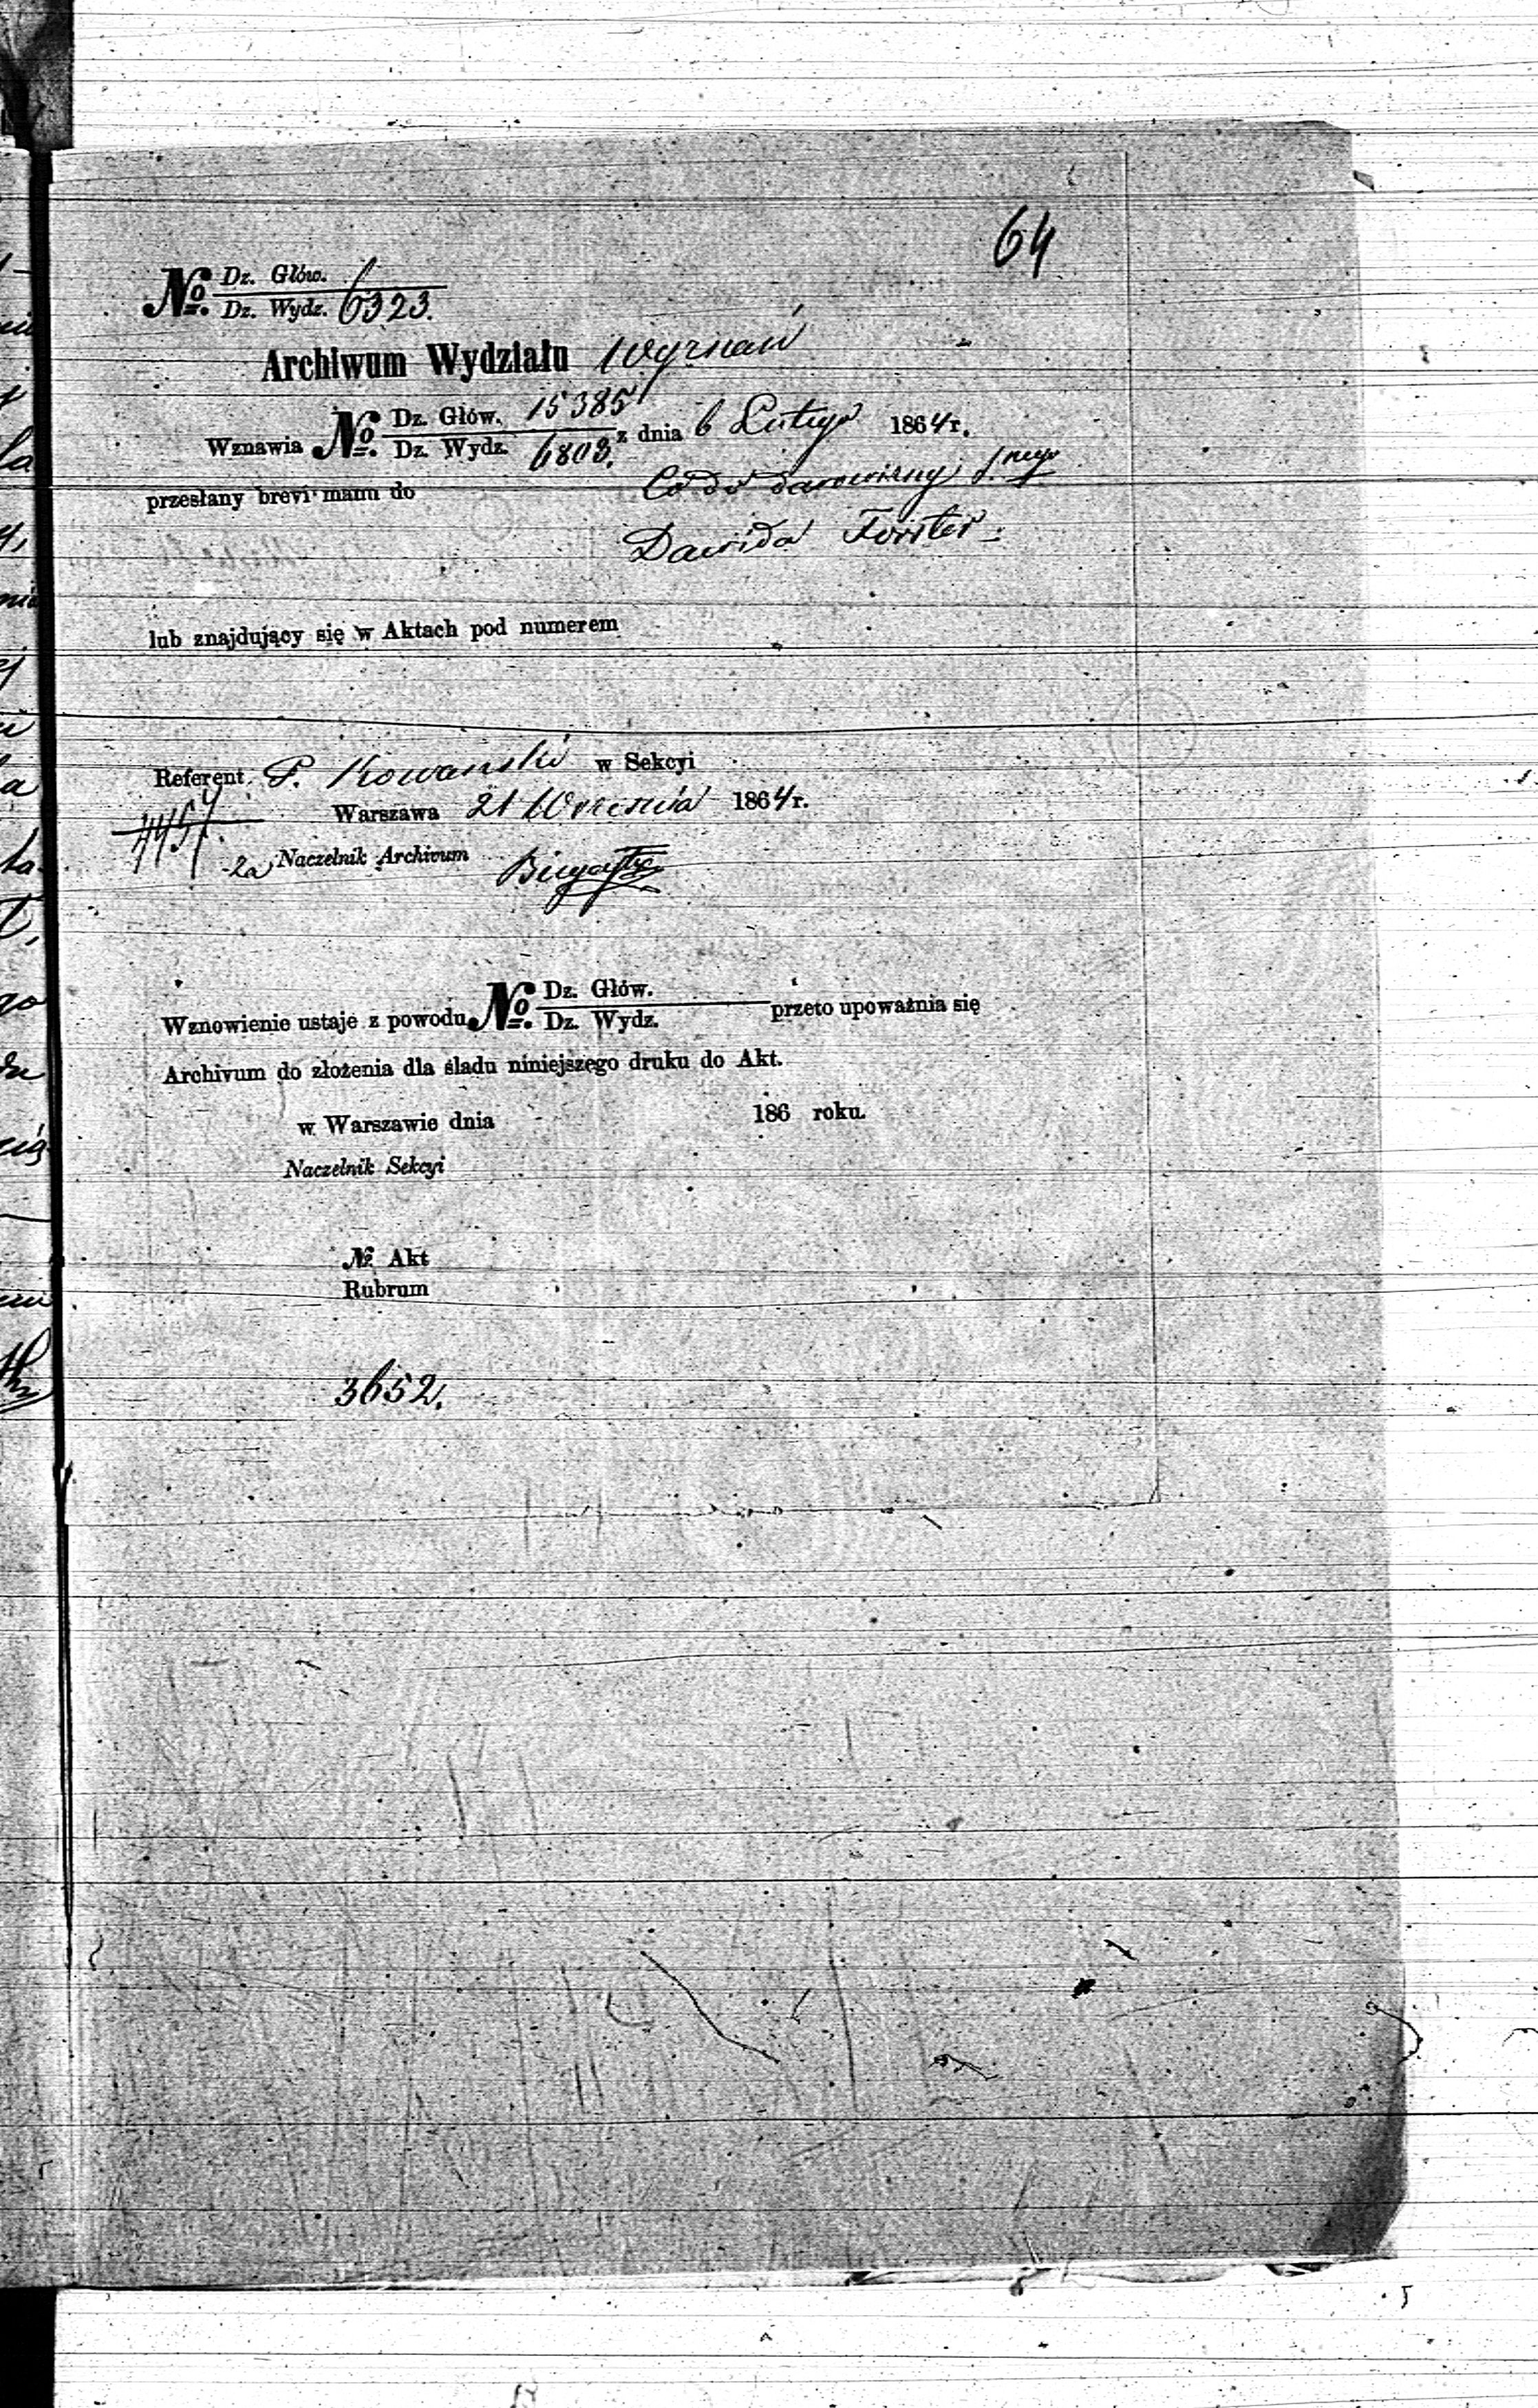 64
№ Dz. Głów.
Dz. Wydz. 6323.
Archiwum Wydziału Wyznań
Wznawia № Dz. Głów. 15385
Dz. Wydz. 6803. z dnia 6 Lutego 1864 r.
przesłany brevi manu do Co do darowizny
Dawida Forster
lub znajdujący się w Aktach pod numerem
Referent P. Kowański w Sekcyi
Warszawa 21 Września 1864 r.
Naczelnik Archivum
Wznowienie ustaje z powodu № Dz. Głów.
Dz. Wydz. przeto upoważnia się
Archivum do złożenia dla śladu niniejszego druku do Akt.
w Warszawie dnia 186 roku.
Naczelnik Sekcyi
№ Akt
Rubrum
3652.